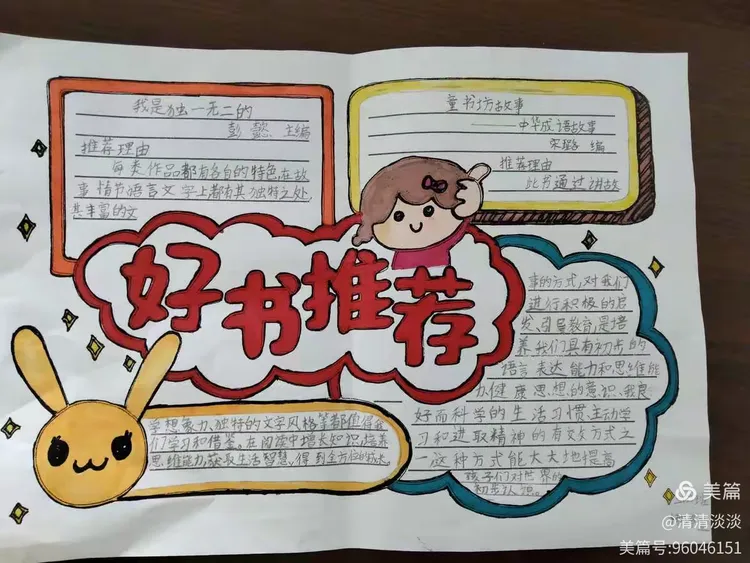 我是独一无二的
彭懿 主编
推荐理由
每类作品都有各自的特色,在故
事情节语言文字上都有其独特之处,
其丰富的文
童书坊故事
——中华成语故事
宋璐 编
推荐理由
此书通过讲故
好书推荐
事的方式,对我们
进行积极的启
发、引导教育,是培
养我们具有初步的
语言表达能力和思维能
力、健康思想的意识、我良
好而科学的生活习惯、主动学
习和进取精神的有效方式之
一这种方式能大大地提高
孩子们对世界的
初步认识。
学想象力、独特的文字风格等都值得我
们学习和借鉴。在阅读中增长知识,培养
思维能力,获取生活智慧,得到全方位的成长
美篇
@清清淡淡
美篇号:96046151